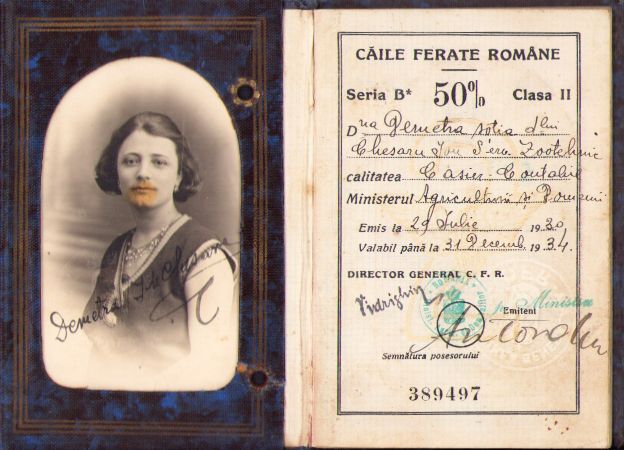 Demetra I. Chesaru
CĂILE FERATE ROMÂNE
Seria B* 50% Clasa II
Dna Demetra soția dlui
Chesaru Ion Serv. Zootehnic
calitatea Casier-Contabil
Ministerul Agriculturii și Domenii
Emis la 29 Iulie 1930
Valabil până la 31 Decemb 1934.
DIRECTOR GENERAL C. F. R.
Vidrighin
p. Ministru
Emitent
Semnătura posesorului
389497